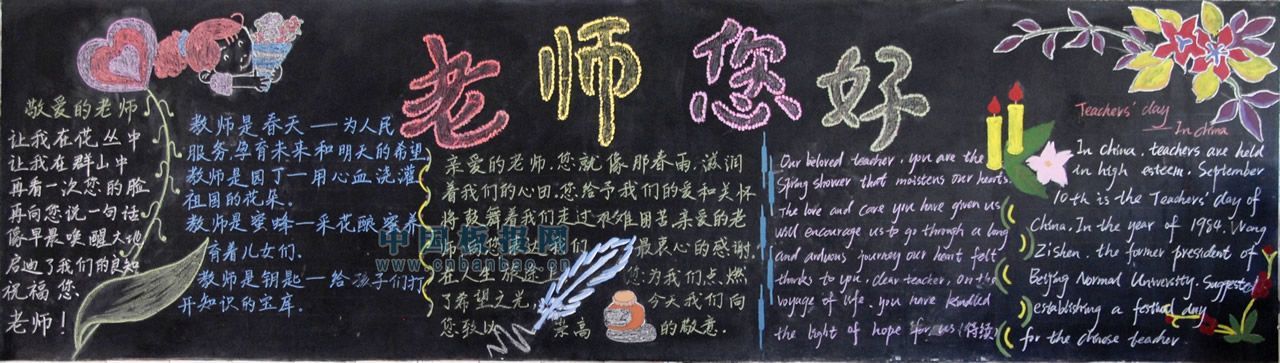 老师您好
敬爱的老师
让我在花丛中
让我在群山中
再看一次您的脸
再向您说一句话
像早晨唤醒大地
启迪了我们的良知
祝福您
老师！
教师是春天——为人民
服务,孕育未来和明天的希望
教师是园丁——用心血浇灌
祖国的花朵。
教师是蜜蜂——采花酿蜜养
育着儿女们.
教师是钥匙——给孩子们打
开知识的宝库.
亲爱的老师,您就像那春雨,滋润
着我们的心田,您给予我们的爱和关怀
将鼓舞着我们走过艰难困苦亲爱的老
师,向您 我们 最衷心的感谢.
在人生旅途 您为我们点燃
了希望之光, 今天我们向
您致以 崇高 的敬意.
Our beloved teacher, you are the
Spring shower that moistens our hearts.
The love and care you have given us
will encourage us to go through a long
and arduous journey our heart felt
thanks to you, dear teacher, on the
voyage of life, you have kindled
the light of hope for us (待续)
Teachers' day
In china
In china, teachers are held
in high esteem. September
10th is the Teachers' day of
China. In the year of 1984. Wang
Zishen, the former president of
Beijing Normal University. suggested
establishing a festival day
for the chinese teacher.
中国板报网
www.cnbanbao.cn